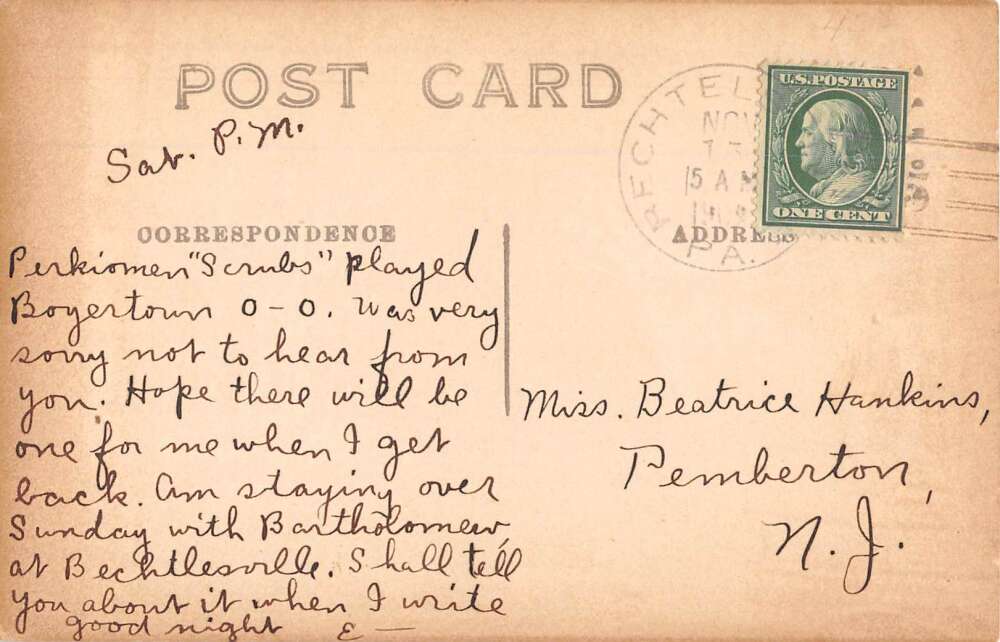 POST CARD
Sat. P.M.
BECHTEL
NOV
5 A M
PA.
U.S. POSTAGE
ONE CENT
CORRESPONDENCE
ADDRESS
Perkiomen "Scrubs" played
Boyertown 0-0. Was very
sorry not to hear from
you. Hope there will be
one for me when I get
back. Am staying over
Sunday with Bartholomew,
at Bechtlesville. Shall tell
you about it when I write
good night E —
Miss. Beatrice Hankins,
Pemberton,
N. J.